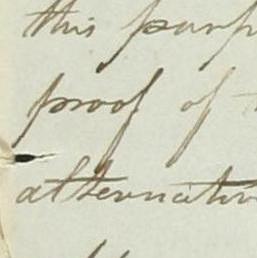 this purp
proof of t
alternativ